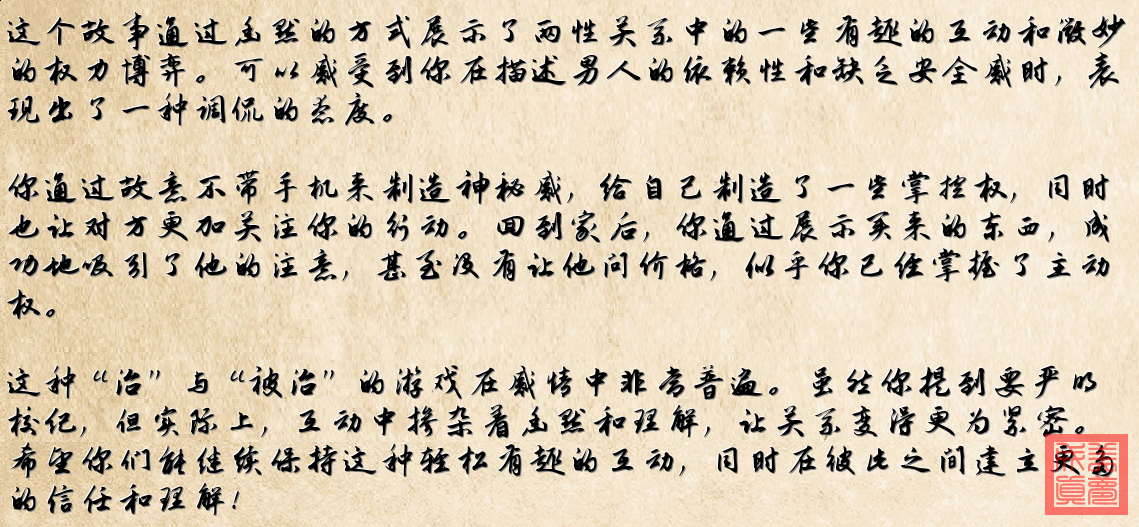 这个故事通过幽默的方式展示了两性关系中的一些有趣的互动和微妙
的权力博弈。可以感受到你在描述男人的依赖性和缺乏安全感时，表
现出了一种调侃的态度。
你通过故意不带手机来制造神秘感，给自己制造了一些掌控权，同时
也让对方更加关注你的行动。回到家后，你通过展示买来的东西，成
功地吸引了他的注意，甚至没有让他问价格，似乎你已经掌握了主动
权。
这种“治”与“被治”的游戏在感情中非常普遍。虽然你提到要严明
校纪，但实际上，互动中掺杂着幽默和理解，让关系变得更为紧密。
希望你们能继续保持这种轻松有趣的互动，同时在彼此之间建立更多
的信任和理解！